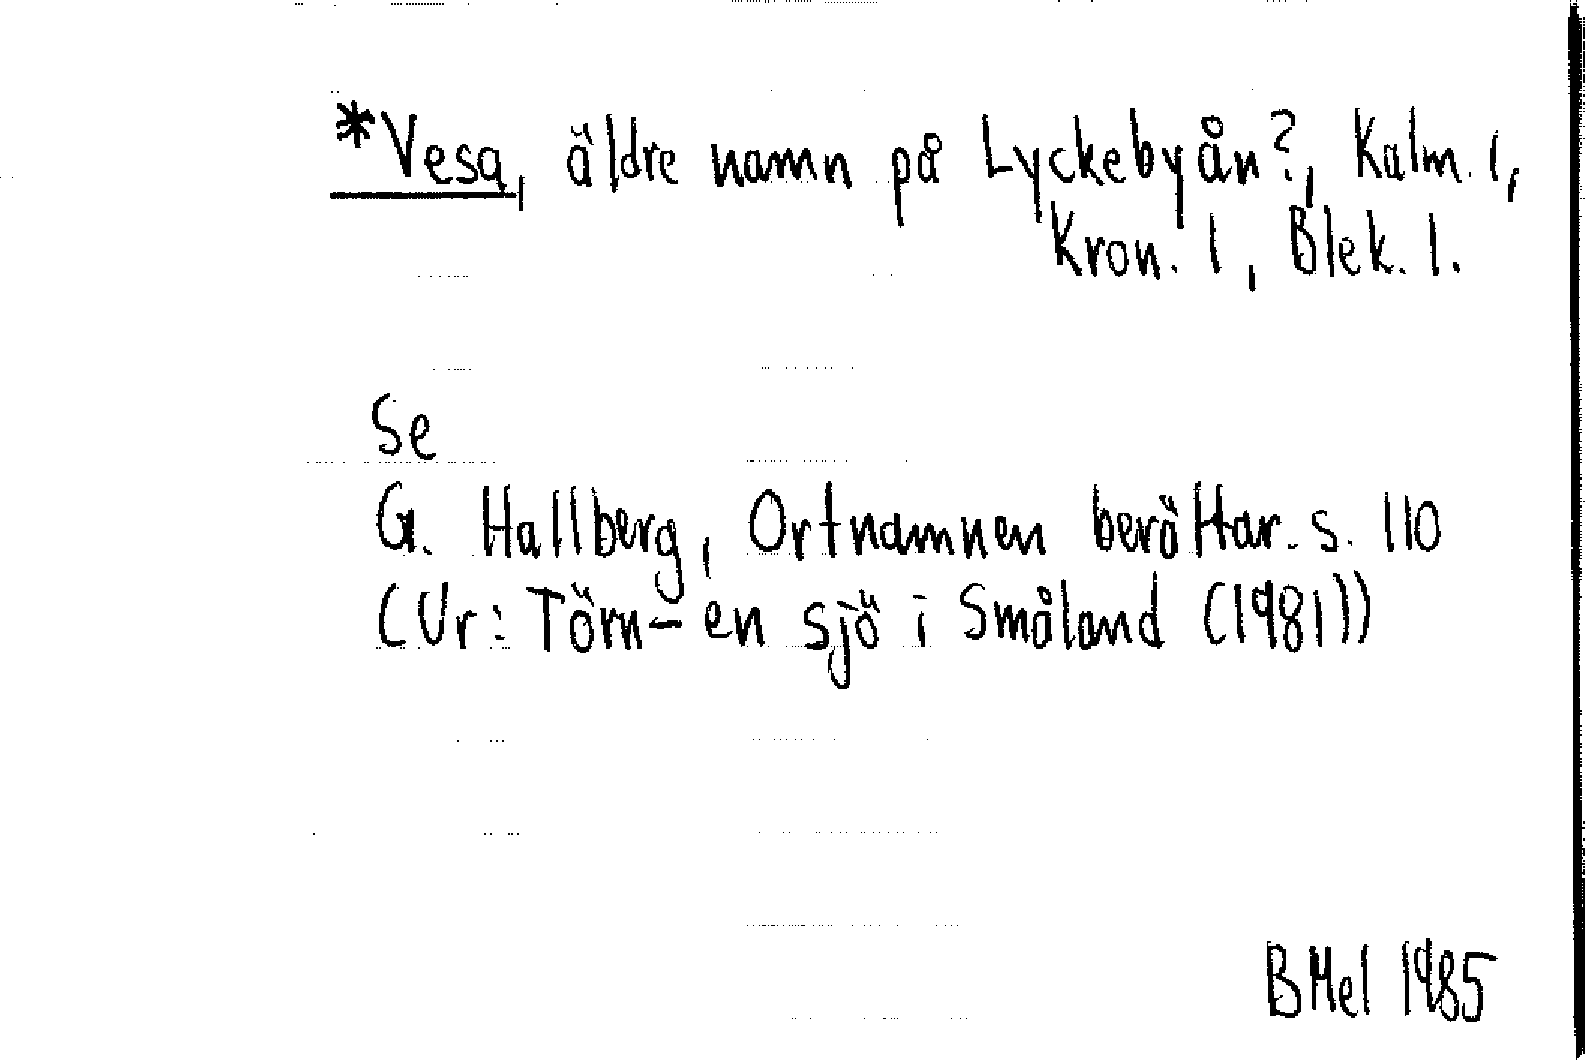 *Vesa, äldre namn på Lyckebyån?, Kalm. l,
Kron. l, Blek. l.
Se
G. Hallberg, Ortnamnen berättar. s. 110
(Ur: Törn - en sjö i Småland (1981))
BMel 1985